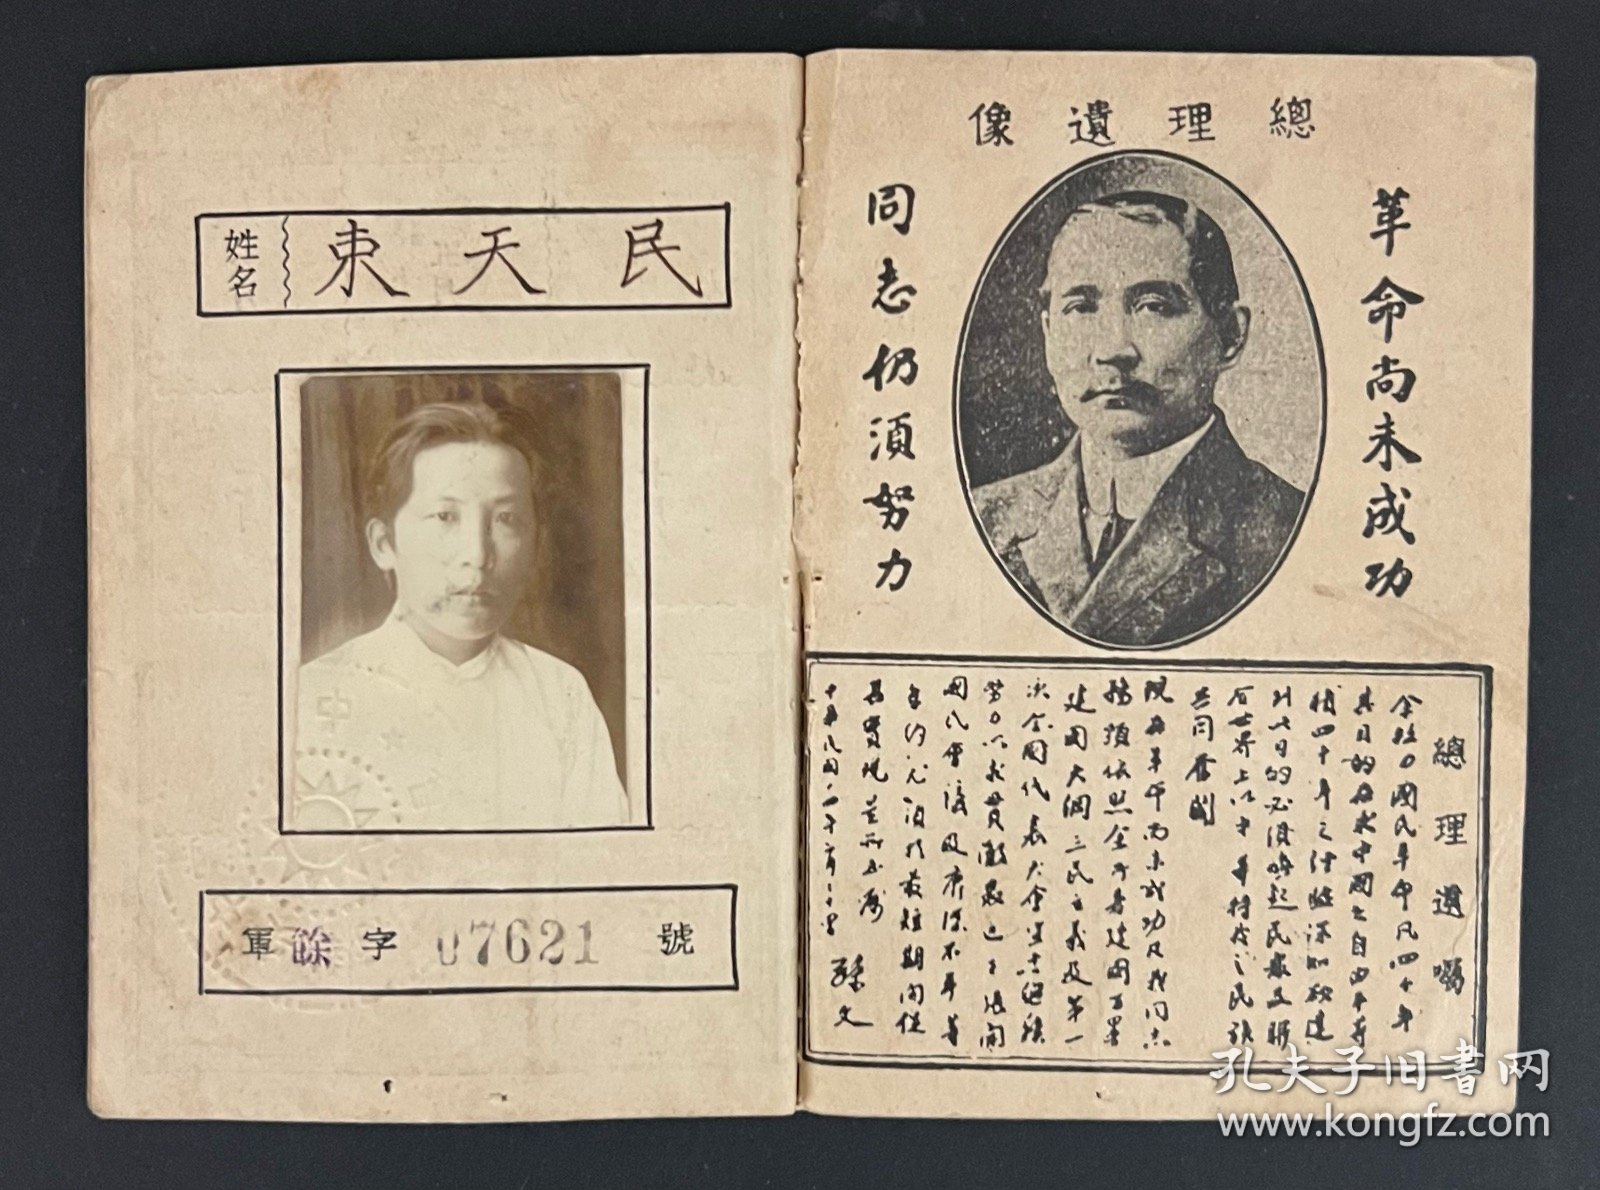 姓名
東天民
軍餘字 07621 號
總理遺像
革命尚未成功
同志仍須努力
總理遺囑
余致力國民革命凡四十年
其目的在求中國之自由平等
積四十年之經驗深知欲達
到此目的必須喚起民衆及聯
合世界上以平等待我之民族
共同奮鬥
現在革命尚未成功凡我同志
務須依照余所著建國方畧
建國大綱三民主義及第一
次全國代表大會宣言繼續
努力以求貫澈最近主張開
國民會議及廢除不平等
條約尤須於最短期間促
其實現是所至囑
孫文
孔夫子旧书网
www.kongfz.com